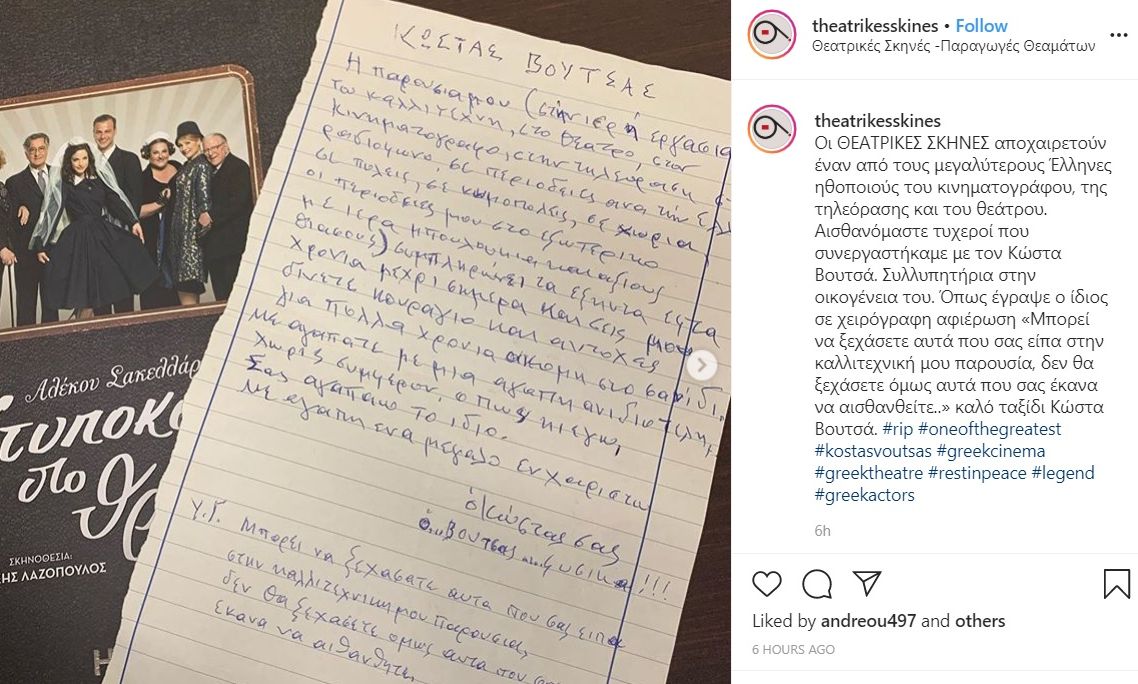 ΚΩΣΤΑΣ ΒΟΥΤΣΑΣ
Η παρουσια μου (στην ιερη εργασια
του καλλιτεχνη, στο θεατρο, στον
κινηματογραφο, στην τηλεοραση
ραδιοφωνο, σε περιοδειες ανα την
σε πολεις, σε κωμοπολεις, σε χωρια
οι περιοδειες μου στο εξωτερικο
με ιερα μπουλουκια και αξιους
θιασους) συμπληρωνει τα εξηντα εφτα
χρονια μεχρι σημερα και σεις μου
δινετε κουραγιο και αντοχες
για πολλα χρονια ακομη στο σανιδι.
Με αγαπατε με μια αγαπη ανιδιοτελη,
χωρις συμφερον, οπως κι εγω,
Σας αγαπαω το ιδιο.
Με αγαπη ενα μεγαλο ευχαριστω
ὁ Κώστας σας
ὁ Βουτσας .... φυσικα!!!
Υ.Γ. Μπορει να ξεχασατε αυτα που σας ειπα
στην καλλιτεχνικη μου παρουσια,
δεν θα ξεχασετε ομως αυτα που
εκανα να αισθανθητε
Αλέκου Σακελλάρ
τυποκ
στο
θρ
ΣΚΗΝΟΘΕΣΙΑ:
ΗΣ ΛΑΖΟΠΟΥΛΟΣ
theatrikesskines • Follow
Θεατρικές Σκηνές -Παραγωγές Θεαμάτων
theatrikesskines
Οι ΘΕΑΤΡΙΚΕΣ ΣΚΗΝΕΣ αποχαιρετούν
έναν από τους μεγαλύτερους Έλληνες
ηθοποιούς του κινηματογράφου, της
τηλεόρασης και του θεάτρου.
Αισθανόμαστε τυχεροί που
συνεργαστήκαμε με τον Κώστα
Βουτσά. Συλλυπητήρια στην
οικογένεια του. Όπως έγραψε ο ίδιος
σε χειρόγραφη αφιέρωση «Μπορεί
να ξεχάσετε αυτά που σας είπα στην
καλλιτεχνική μου παρουσία, δεν θα
ξεχάσετε όμως αυτά που σας έκανα
να αισθανθείτε..» καλό ταξίδι Κώστα
Βουτσά. #rip #oneofthegreatest
#kostasvoutsas #greekcinema
#greektheatre #restinpeace #legend
#greekactors
6h
Liked by andreou497 and others
6 HOURS AGO